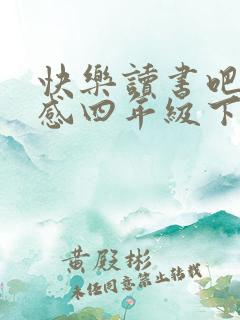 快樂讀書吧
感四年級下
黃殿彬
未经同意禁止转载